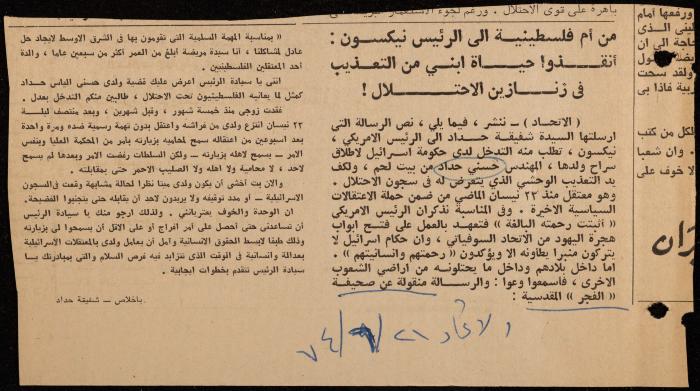 باهرة على قوى الاحتلال . ورغم لجوء الاستعمار
من أم فلسطينية الى الرئيس نيكسون :
أنقذوا حياة ابني من التعذيب
في زنازين الاحتلال !
( الاتحاد ) — ننشر ، فيما يلي ، نص الرسالة التي
ارسلتها السيدة شفيقة حداد الى الرئيس الامريكي ،
نيكسون ، تطلب منه التدخل لدى حكومة اسرائيل لاطلاق
سراح ولدها ، المهندس حسني حداد من بيت لحم ، ولكف
يد التعذيب الوحشي الذي يتعرض له في سجون الاحتلال .
وهو معتقل منذ ٢٢ نيسان الماضي من ضمن حملة الاعتقالات
السياسية الاخيرة . وفي المناسبة نذكران الرئيس الامريكي
« أثبتت رحمته البالغة » فتعهد بالعمل على فتح ابواب
هجرة اليهود من الاتحاد السوفياتي ، وان حكام اسرائيل لا
يتركون منبرا يطاونه الا ويؤكدون « رحمتهم وانسانيتهم » .
اما داخل بلادهم وداخل ما يحتلونه من اراضي الشعوب
الاخرى ، فاسمعوا وعوا : والرسالة منقولة عن صحيفة
« الفجر » المقدسية :
« بمناسبة المهمة السلمية التي تقومون بها في الشرق الاوسط لإيجاد حل
عادل لمشاكلنا ، أنا سيدة مريضة أبلغ من العمر أكثر من سبعين عاما ، والدة
أحد المعتقلين الفلسطينيين .
انني يا سيادة الرئيس اعرض عليك قضية ولدي حسني الياس حداد
كمثل لما يعانيه الفلسطينيون تحت الاحتلال ، طالبين منكم التدخل بعدل .
فقدت زوجي منذ خمسة شهور ، وقبل شهرين ، وبعد منتصف ليلة
٢٢ نيسان انتزع ولدي من فراشه واعتقل بدون تهمة رسمية ضده ومرة واحدة
بعد اسبوعين من اعتقاله سمح لمحاميه بزيارته بأمر من المحكمة العليا وبنفس
الامر — يسمح لاهله بزيارته — ولكن السلطات رفضت الامر وبعدها لم يسمح
لاحد ، لا محاميه ولا اهله ولا الصليب الاحمر حتى بمقابلته .
والان بت أخشى أن يكون ولدي ميتا نظرا لحالة مشابهة وقعت في السجون
الاسرائيلية — او مدد توقيفه ولا يريدون لاحد أن يقابله حتى يتجنبوا الفضيحة.
ان الوحدة والخوف يعتريانني . ولذلك ارجو منك يا سيادة الرئيس
أن تساعدني حتى احصل على أمر افراج او على الاقل أن يسمحوا لي بزيارته
وذلك طبقا لابسط الحقوق الانسانية وآمل أن يعامل ولدي بالمعتقلات الاسرائيلية
بعدالة وانسانية في الوقت الذي تتزايد فيه فرص السلام والتي بمبادرتك يا
سيادة الرئيس تتقدم بخطوات ايجابية .
باخلاص — شفيقة حداد
الاتحاد ٢١
٧٤
ورفعها أمام
ولقد سحت
لكل من كتب
. وان شعبا
لا خوف على